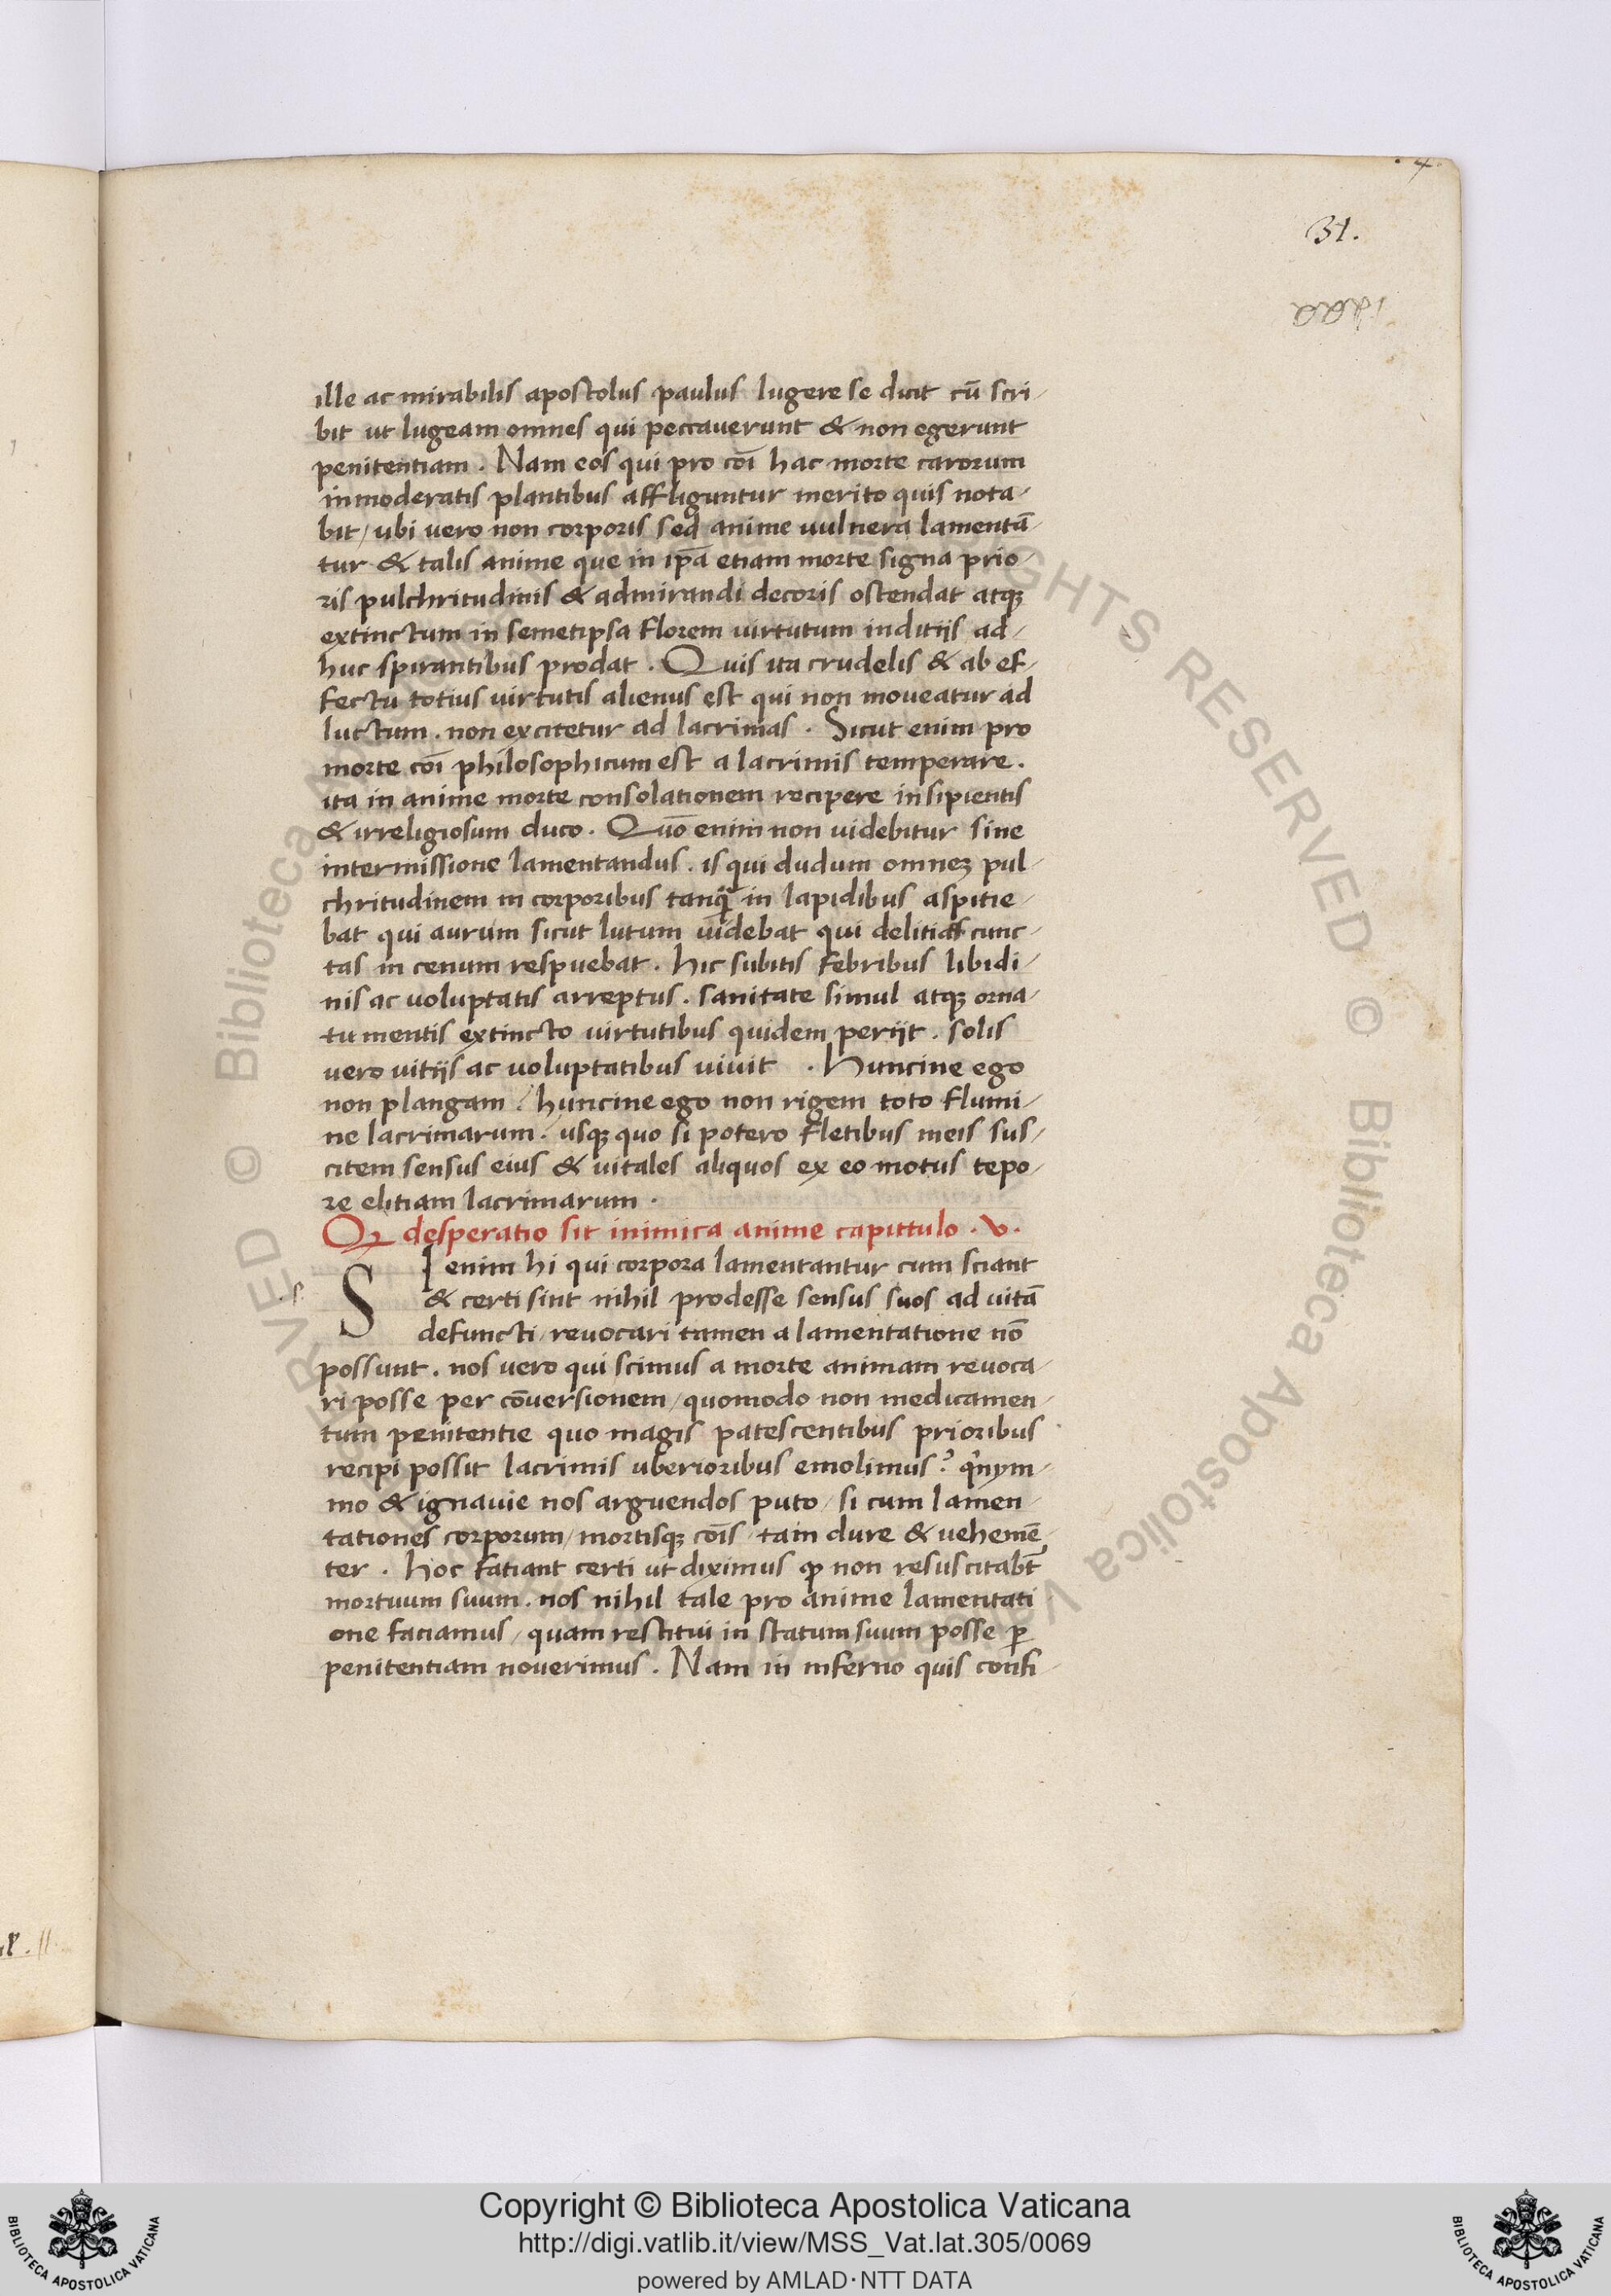 31.
ille ac mirabilis apostolus paulus lugere se dicit cū scri-
bit ut lugeam omnes qui peccauerunt & non egerunt
penitentiam. Nam eos qui pro cōi hac morte carorum
inmoderatis plantibus affliguntur merito quis nota-
bit/ ubi vero non corporis sed anime uulnera lamentā-
tur & talis anime que in ipā etiam morte signa prio-
ris pulchritudinis & admirandi decoris ostendat atqꝫ
extinctum in semetipsa florem uirtutum inditijs ad-
huc spirantibus prodat. Quis ita crudelis & ab ef-
fectu totius virtutis alienus est qui non moueatur ad
luctum. non excitetur ad lacrimas. Sicut enim pro
morte cōi philosophicum est a lacrimis temperare.
ita in anime morte consolationem recipere insipientis
& irreligiosum duco. Quō enim non uidebitur sine
intermissione lamentandus. is qui dudum omneꝫ pul-
chritudinem in corporibus tanqꝫ in lapidibus aspitie-
bat qui aurum sicut lutum uidebat qui delitias cunc-
tas in cenum respuebat. hic subitis febribus libidi-
nis ac uoluptatis arreptus. sanitate simul atqꝫ orna-
tu mentis extincto uirtutibus quidem perijt. solis
uero uitijs ac uoluptatibus uiuit. Huncine ego
non plangam? huncine ego non rigem toto flumi-
ne lacrimarum? usqꝫ quo si potero fletibus meis sus-
citem sensus eius & uitales aliquos ex eo motus tepo-
re elitiam lacrimarum.
Qꝫ desperatio sit inimica anime capittulo. v.
SI enim hi qui corpora lamentantur cum sciant
& certi sint nihil prodesse sensus suos ad uitā
defuncti/ reuocari tamen a lamentatione nō
possunt. nos vero qui scimus a morte animam reuoca-
ri posse per cōuersionem/ quomodo non medicamen-
tum penitentie quo magis patescentibus prioribus
recipi possit lacrimis uberioribus emolimus? qinym-
mo & ignauie nos arguendos puto/ si cum lamen-
tationes corporum/ mortisqꝫ cōis tam dure & uehemē-
ter. hoc fatiant certi ut diximus ꝙ non resuscitabt̄
mortuum suum. nos nihil tale pro anime lamentati
one faciamus/ quam restitui in statum suum posse ꝑ
penitentiam nouerimus. Nam in inferno quis confi-
Copyright © Biblioteca Apostolica Vaticana
http://digi.vatlib.it/view/MSS_Vat.lat.305/0069
powered by AMLAD·NTT DATA
BIBLIOTECA APOSTOLICA VATICANA
BIBLIOTECA APOSTOLICA VATICANA